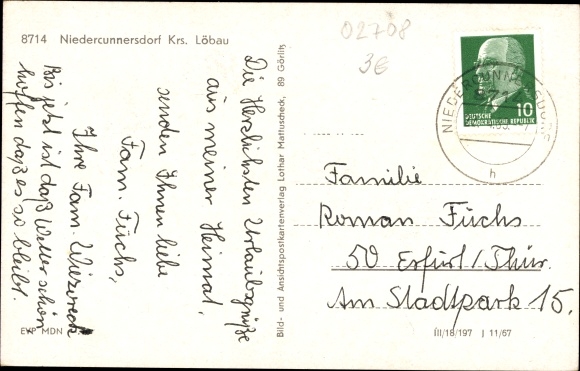 8714 Niedercunnersdorf Krs. Löbau
Die Herzlichsten Urlaubsgrüße
aus meiner Heimat,
senden Ihnen liebe
Fam. Fuchs,
Ihre Fam.
Bis jetzt ist daß Wetter schön
hoffen daß es so bleibt.
EVP MDN
Bild- und Ansichtspostkartenverlag Lothar Mattuscheck, 89 Görlitz
02708
3€
DEUTSCHE
DEMOKRATISCHE REPUBLIK
10
NIEDERCUNNERSDORF
h
Familie
Roman Fuchs
50 Erfurt/Thür.
Am Stadtpark 15.
III/18/197 J 11/67